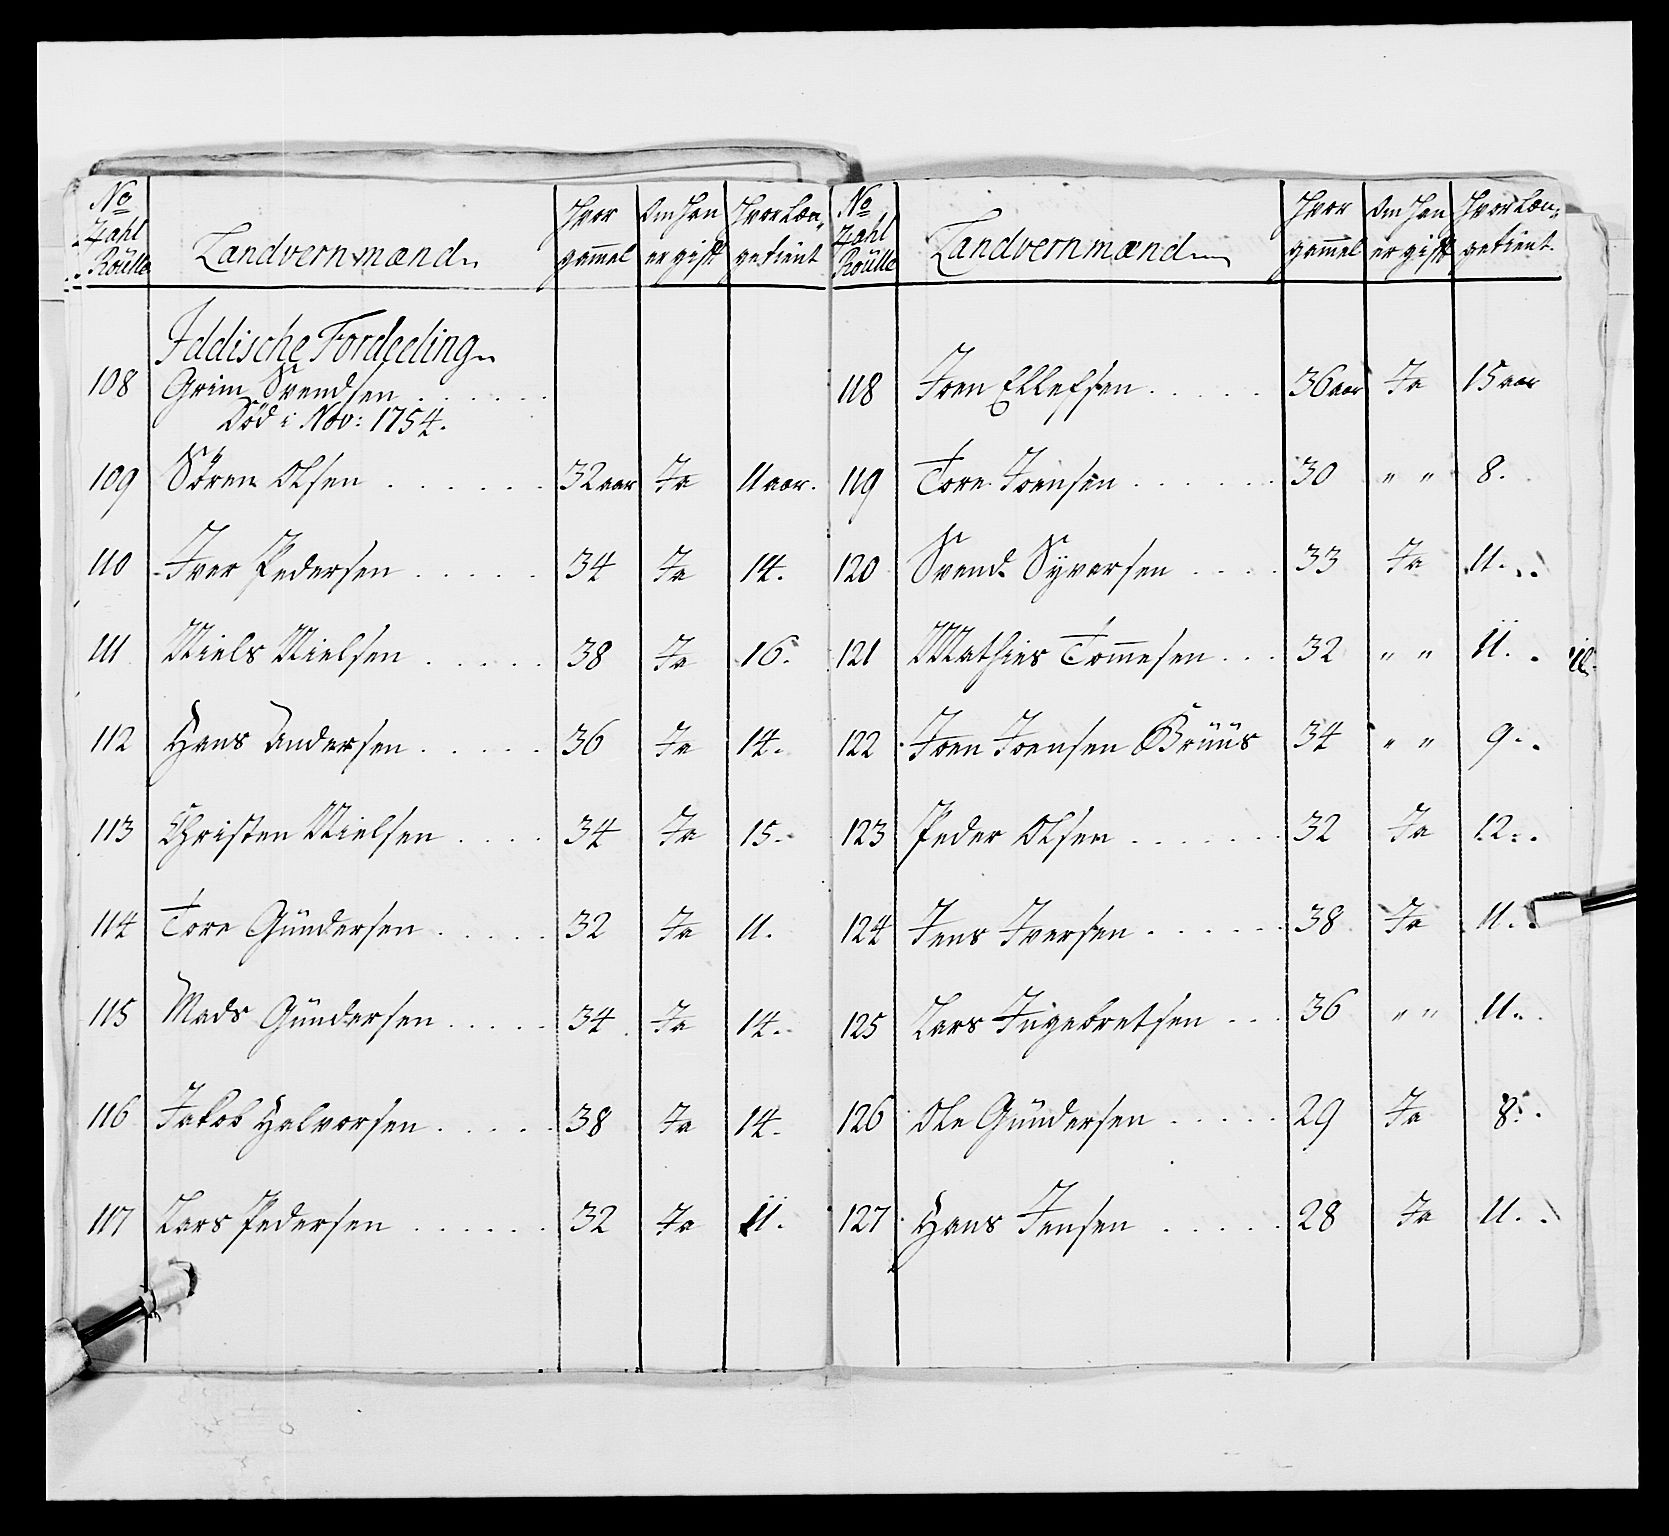 No Zahl Roulle | Landvernmænd | Hvor gammel | Om Han er gift | Hvor Læn, getient
Iddische Fordeeling
108 Grim Svendsen . . . . . .
Död i Nov: 1754.
109 Sören Olsen . . . . . . 32 aar Ja 11 aar.
110 Iver Pedersen . . . . . 34 Ja 14.
111 Niels Nielsen . . . . . 38 Ja 16.
112 Hans Andersen . . . . . 36 Ja 14.
113 Christen Nielsen . . . . 34 Ja 15.
114 Tore Gündersen . . . . . 32 Ja 11.
115 Mads Gündersen . . . . . 34 Ja 14.
116 Jakob Halvorsen . . . . . 38 Ja 14.
117 Lars Pedersen . . . . . . 32 Ja 11.
No Zahl Roülle | Landvernmænd | Hvor gammel | Om Han er gift | Hvor Læn, getient
118 Joen Ellefsen . . . . . 36 aar Ja 15 aar
119 Tore Joensen . . . . . . 30 " " 8.
120 Svend Syversen . . . . 33 Ja 11.
121 Mathies Tommesen . . . 32 " " 11.
122 Joen Joensen Brüüs 34 " " 9.
123 Peder Olsen . . . . . . 32 Ja 12.
124 Jens Iversen . . . . . . 38 Ja 11.
125 Lars Ingebretsen . . . 36 " " 11.
126 Ole Gündersen . . . . . 29 Ja 8.
127 Hans Jensen . . . . . 28 Ja 11.